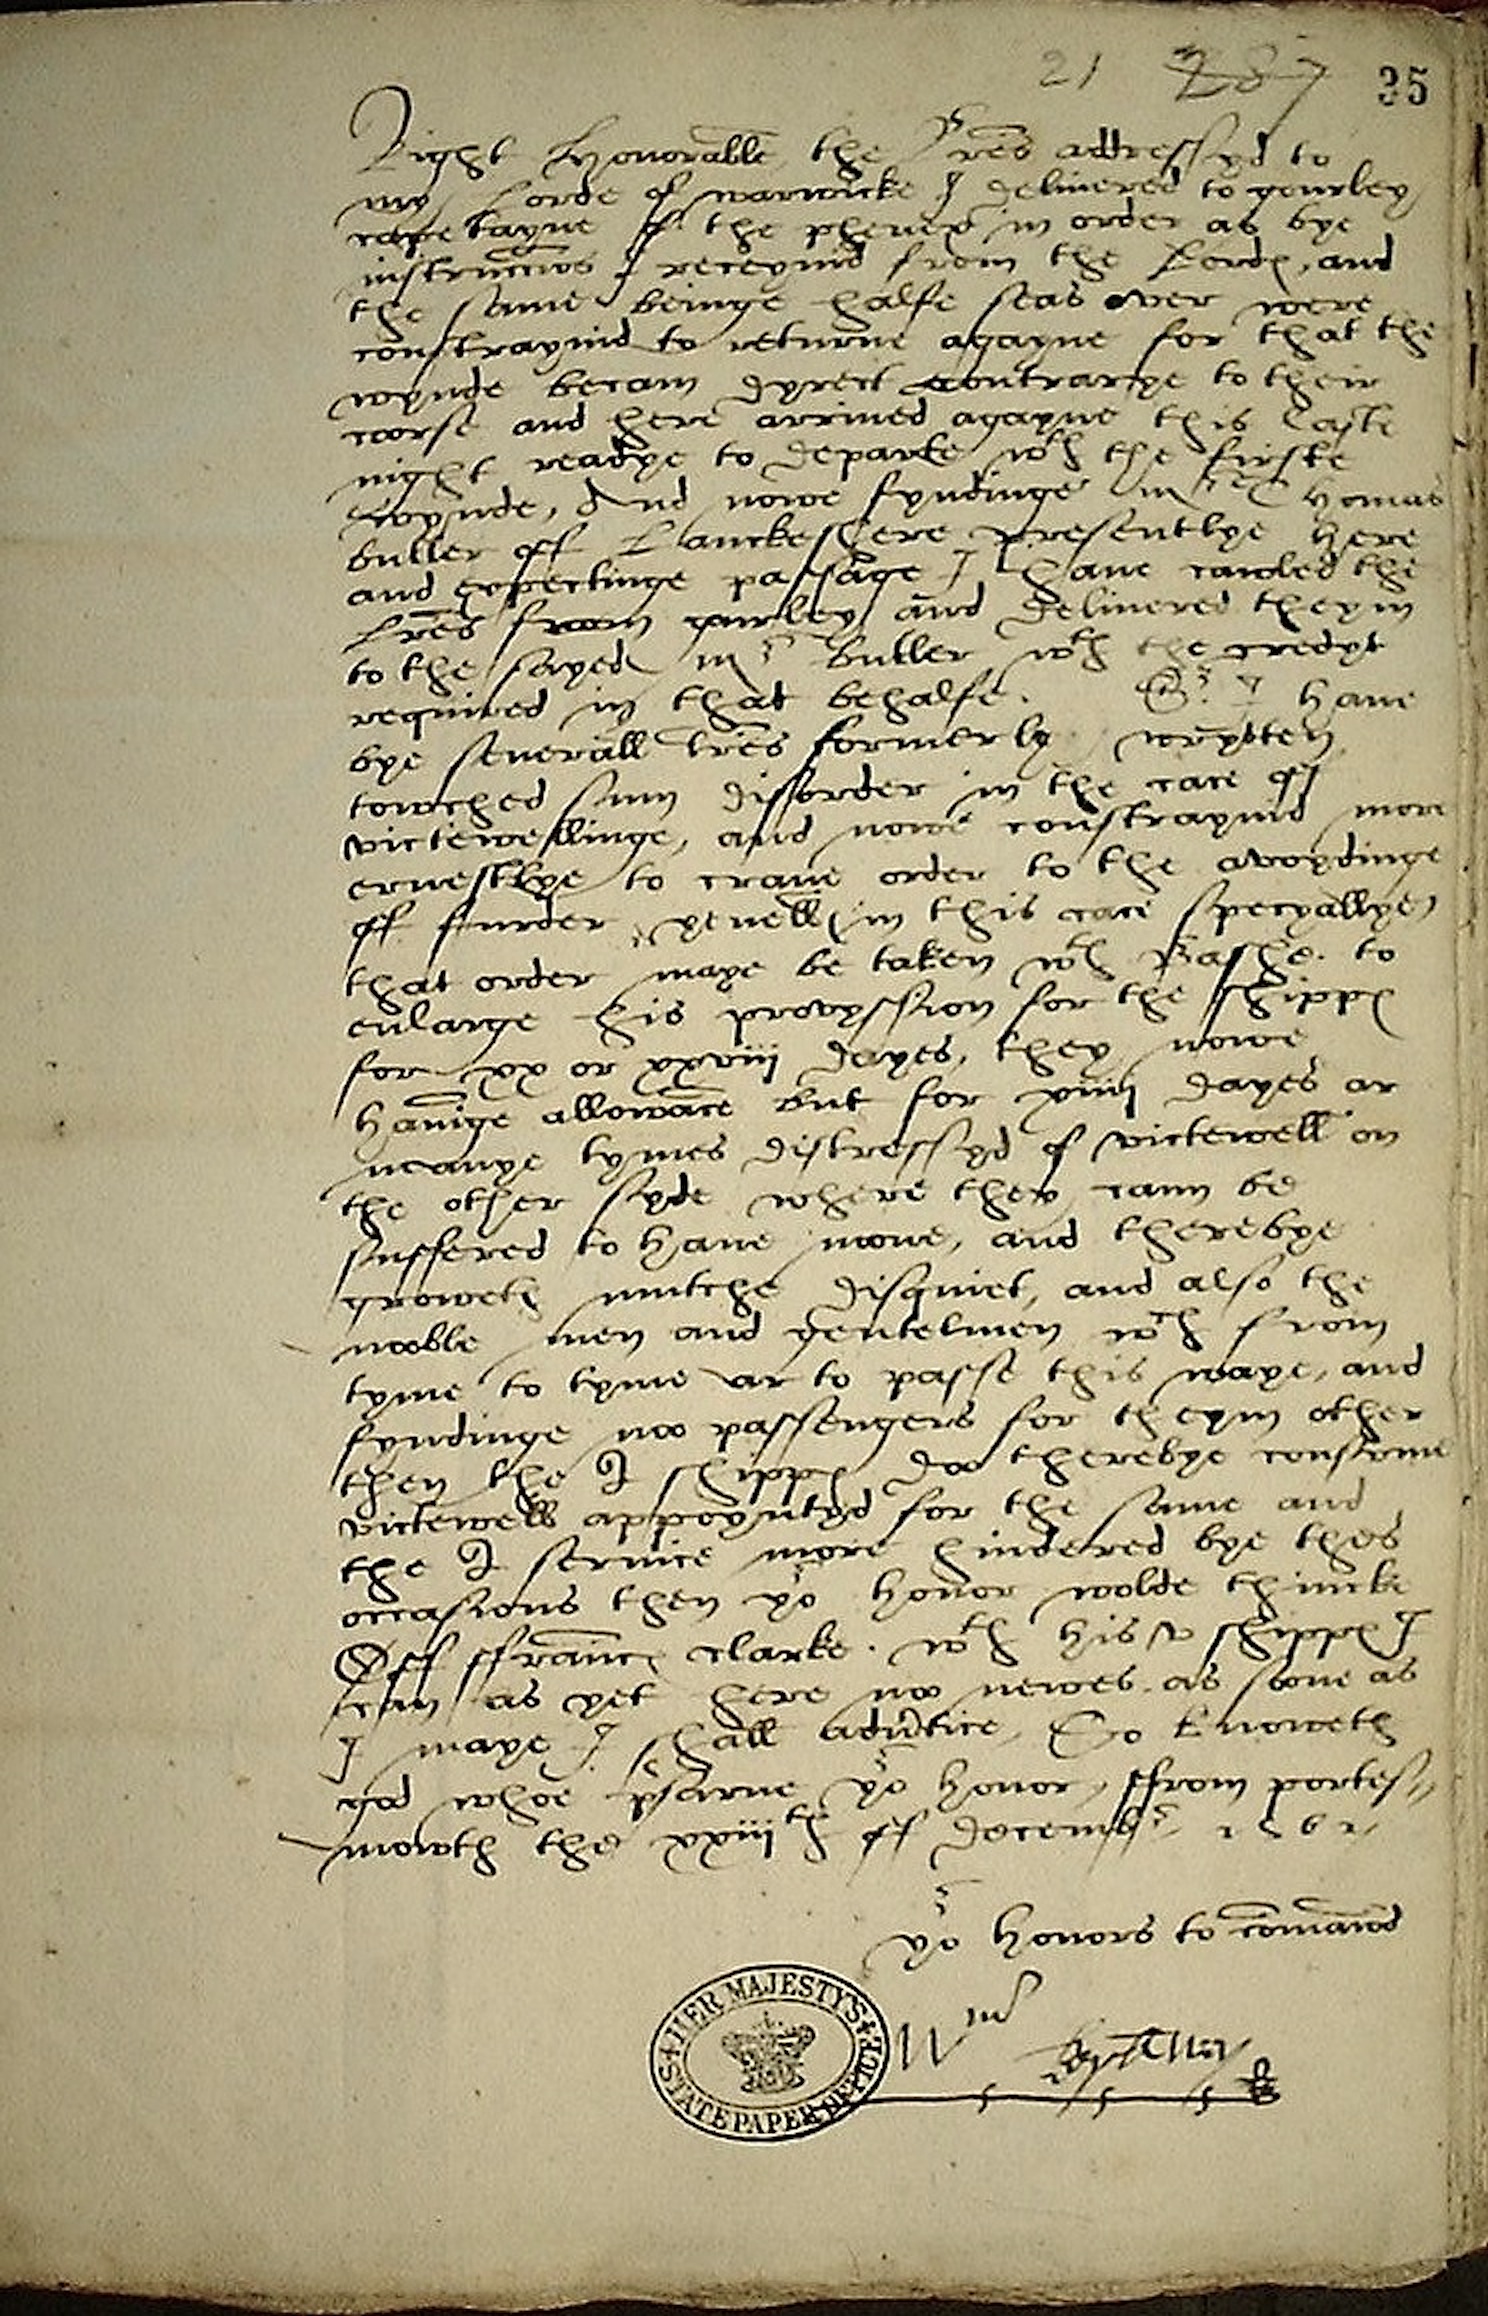 21 287 35
Right honorable the lres addressyd to
my Lorde of warwicke I delivered to yourley
capetayne of the phenex in order as bye
instruccions I receyvid from the Lords, and
the same beinge halfe seas over were
constraynid to returne agayne for that the
wynde becam dyrect contrarye to their
coorse and here arrived agayne this laste
night readye to departe wth the firste
wynde, And nowe fyndinge mr Thomas
butler off Lanckeshere presentlye here
and expectinge passage I have cawled the
lres from yourley and delivered theym
to the sayed mr butler wth the credyt
required in that behalfe. Sr I have
bye severall lres formerly wrytten
towched sum dissorder in the case off
victewellinge, and nowe constraynid more
ernestlye to crave order to the avoydinge
off furder yevell in this case specyallye
that order maye be taken wth Bashe. to
enlarge his provyssion for the shipps
for xx or xxviii dayes, they nowe
havinge allowance but for xiiii dayes ar
manye tymes distressyd of victewell on
the other syde where they cann be
suffered to have none, and therebye
groweth mutche disquiet, and also the
nooble men and gentelmen wch from
tyme to tyme ar to passe this waye, and
fyndinge noo passengers for theym other
then the Q shipps doo therebye consume
victewells appoyntyd for the same and
the Q service more hindered bye thes
occasions then yor honor wolde thincke
Off ffrancs clarke. wth his v shipps I
can as yet here noo newes. as soone as
I maye I shall advertice, So knoweth
god whoe pserve yor honor, ffrom portes//
mowth the xxiiith off decembr 1562
yor honors to comaund
Wm
HER MAJESTY'S STATE PAPER OFFICE